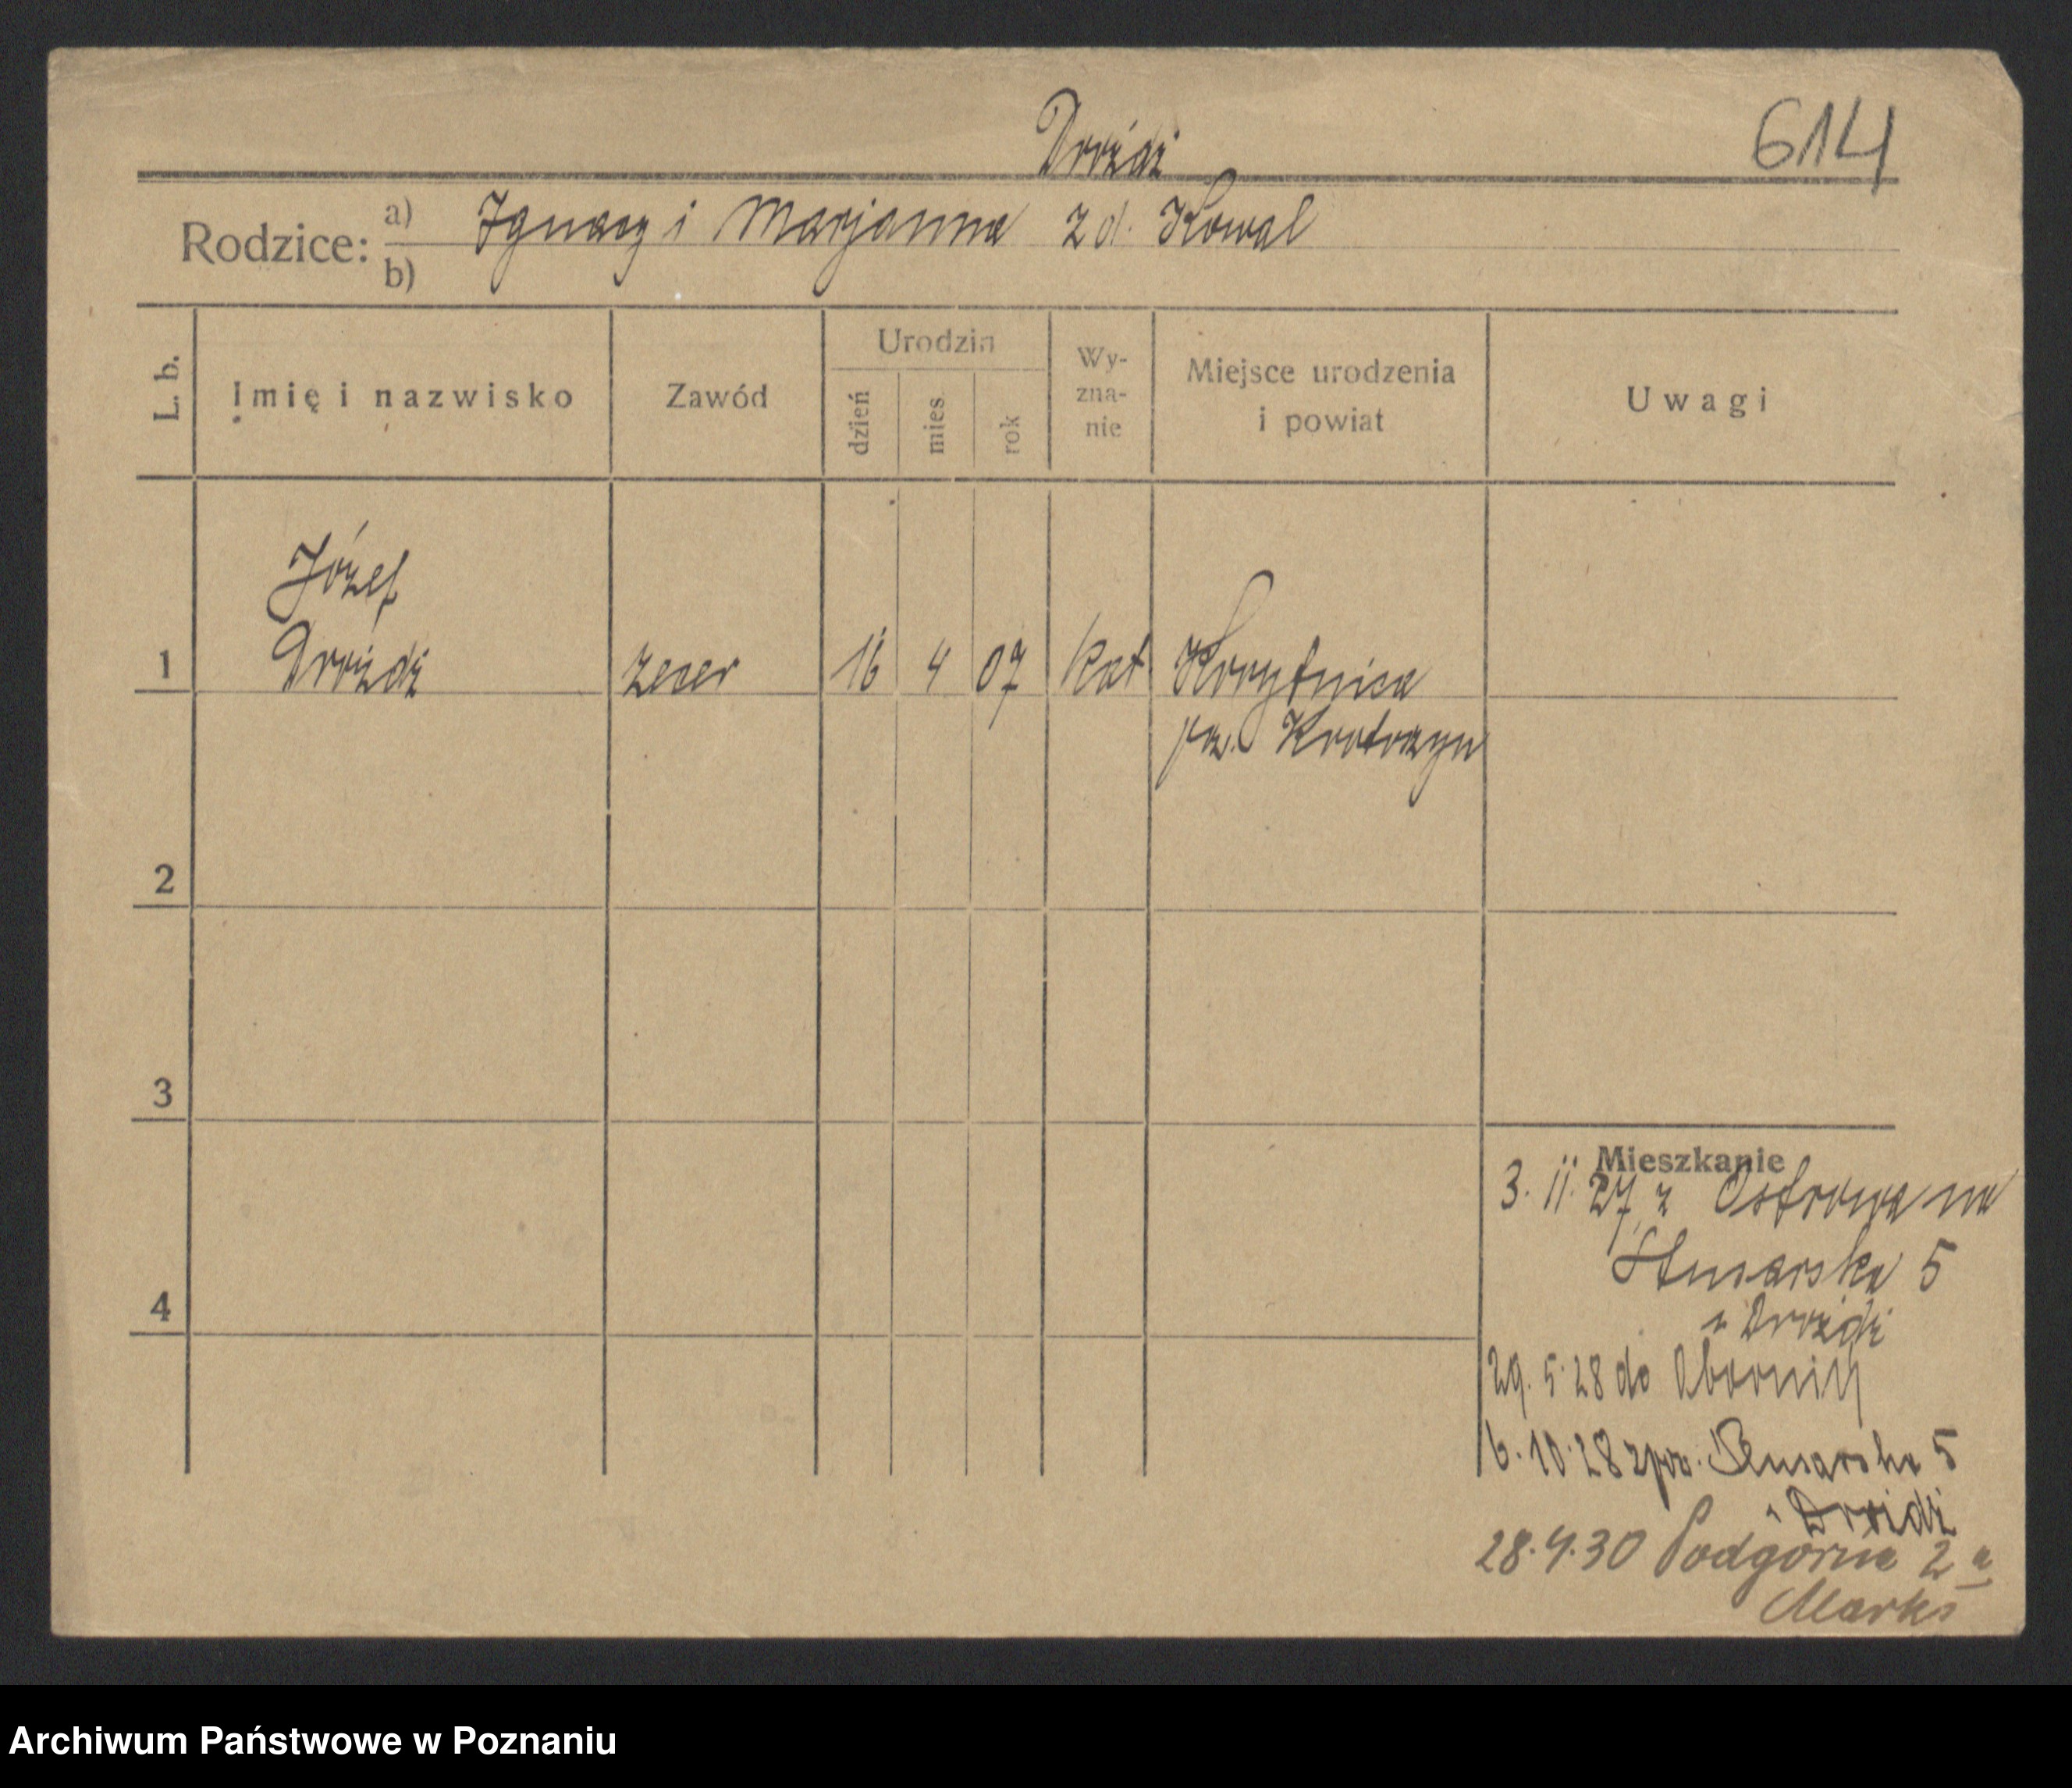 Drożdż
614
Rodzice: a) Ignacy i Marjanna z d. Kowal
b)
L. b.
Imię i nazwisko
Zawód
Urodzin
dzień
mies.
rok
Wy-
zna-
nie
Miejsce urodzenia
i powiat
Uwagi
Józef
1 Drożdż zecer 16 4 07 kat Korytnica
pow. Krotoszyn
2
3
4
Mieszkanie
3. 11. 27 z Ostrowa na
5
u Drożdż
29. 5. 28 do Obornik
6. 10. 28 zpow. 5
u Drożdż
28.4.30 Podgórna 2 a
Marks
Archiwum Państwowe w Poznaniu